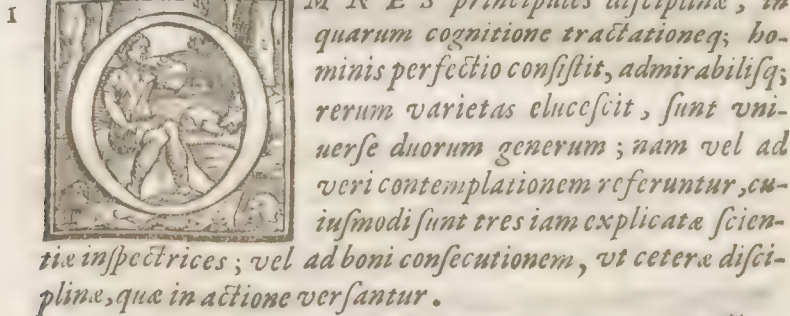 1 OMNES principales disciplinæ, in
quarum cognitione tractationeq; ho-
minis perfectio consistit, admirabilisq;
rerum varietas elucescit, sunt vni-
uerse duorum generum; nam vel ad
veri contemplationem referuntur, cu-
iusmodi sunt tres iam explicatæ scien-
tiæ inspectrices; vel ad boni consecutionem, vt ceteræ disci-
plinæ, quæ in actione versantur.